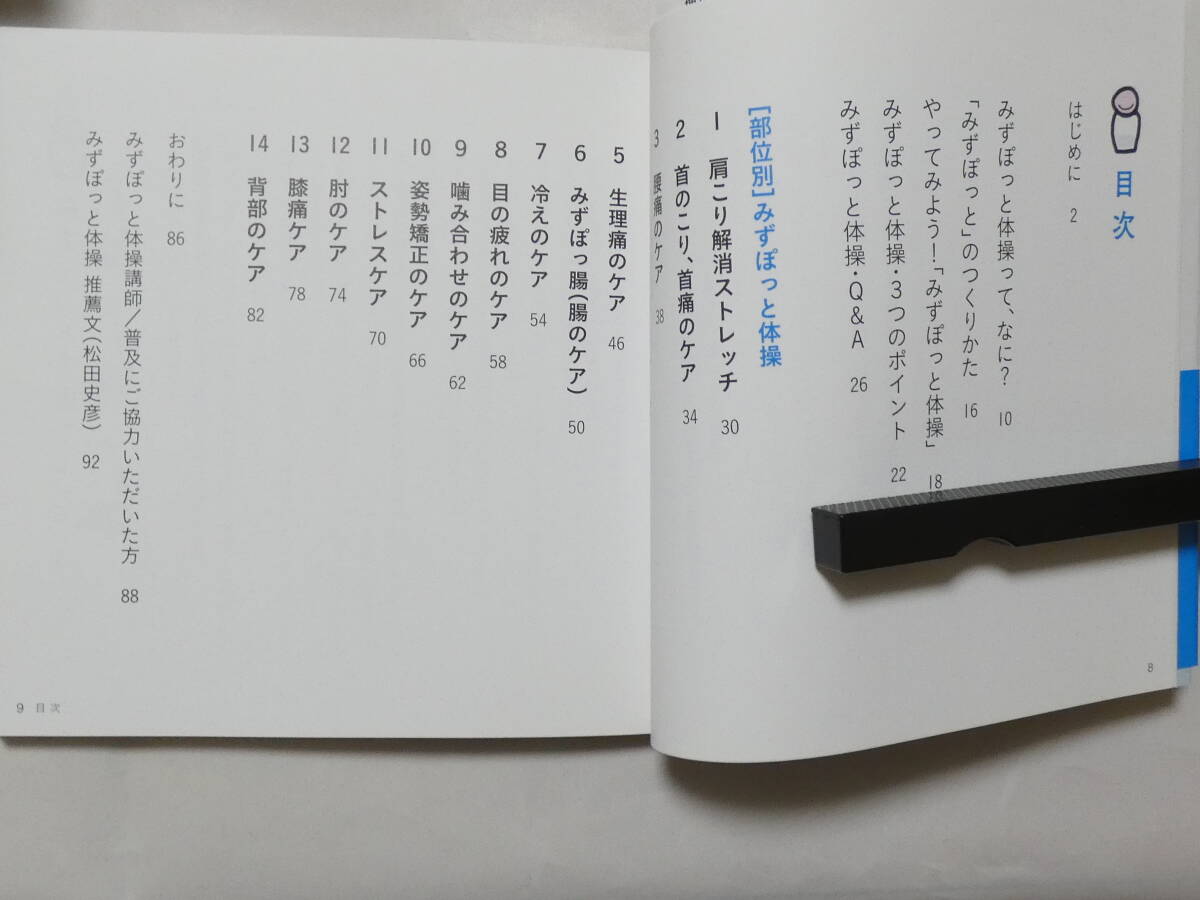 目次
はじめに 2
みずぽっと体操って、なに? 10
「みずぽっと」のつくりかた 16
やってみよう!「みずぽっと体操」 18
みずぽっと体操・3つのポイント 22
みずぽっと体操・Q&A 26
[部位別]みずぽっと体操
1 肩こり解消ストレッチ 30
2 首のこり、首痛のケア 34
3 腰痛のケア 38
8
5 生理痛のケア 46
6 みずぽっ腸(腸のケア) 50
7 冷えのケア 54
8 目の疲れのケア 58
9 噛み合わせのケア 62
10 姿勢矯正のケア 66
11 ストレスケア 70
12 肘のケア 74
13 膝痛ケア 78
14 背部のケア 82
おわりに 86
みずぽっと体操講師/普及にご協力いただいた方 88
みずぽっと体操 推薦文(松田史彦) 92
9 目次